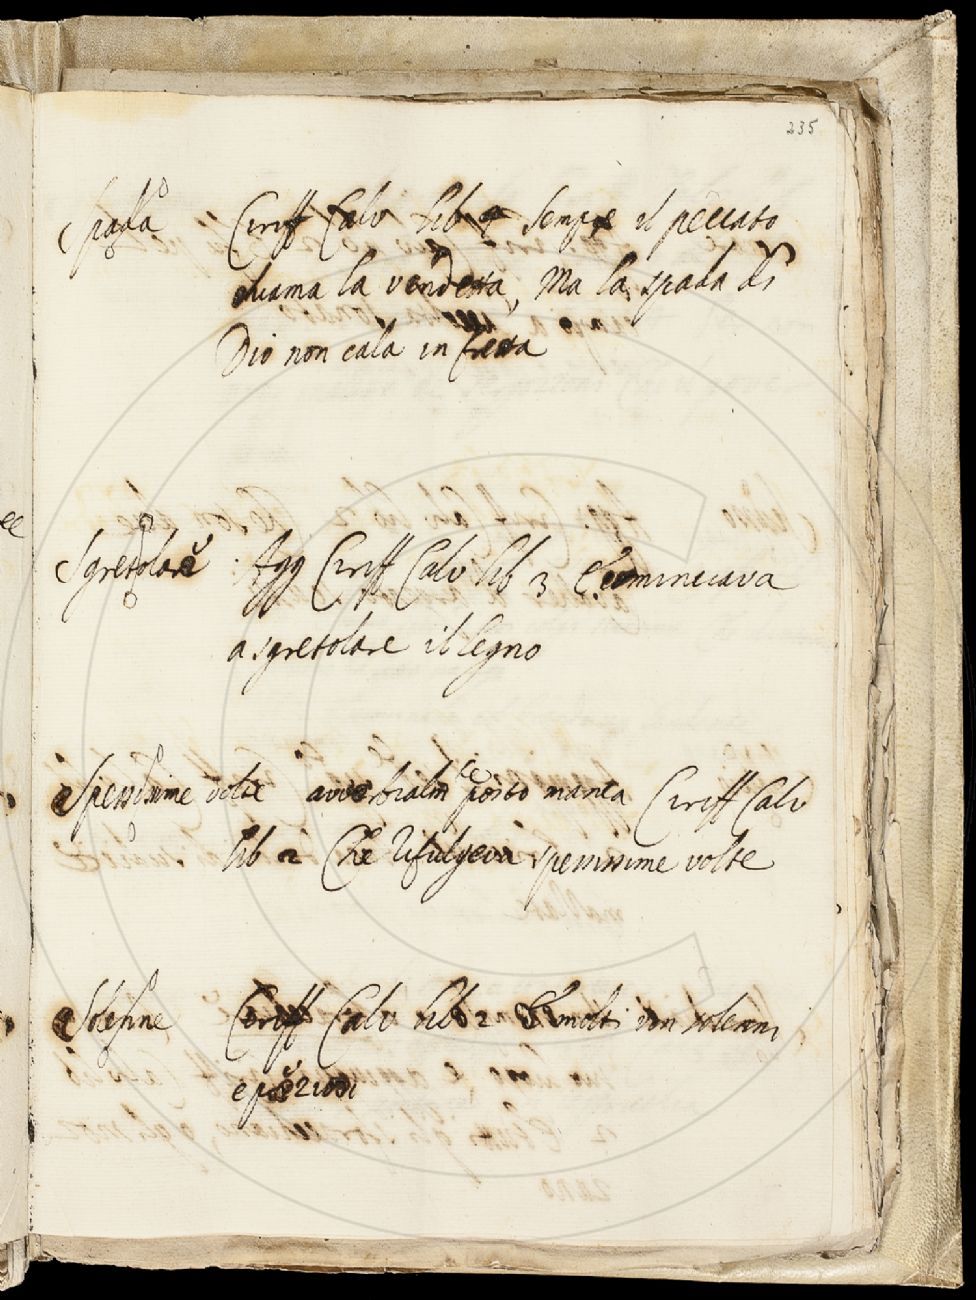 235
Spada Ciriff Calv lib 2 Sempre il peccato
chiama la vendetta, Ma la spada di
Dio non cala in fretta
Sgretolare Agg Ciriff Calv lib 3 E cominciava
a sgretolare il legno
Spessissime volte avverbialmte posto manca Ciriff Calv
lib 2 Che rifulgeva spessissime volte
Solenne Ciriff Calv lib 2 molti vin solenni
e preziosi